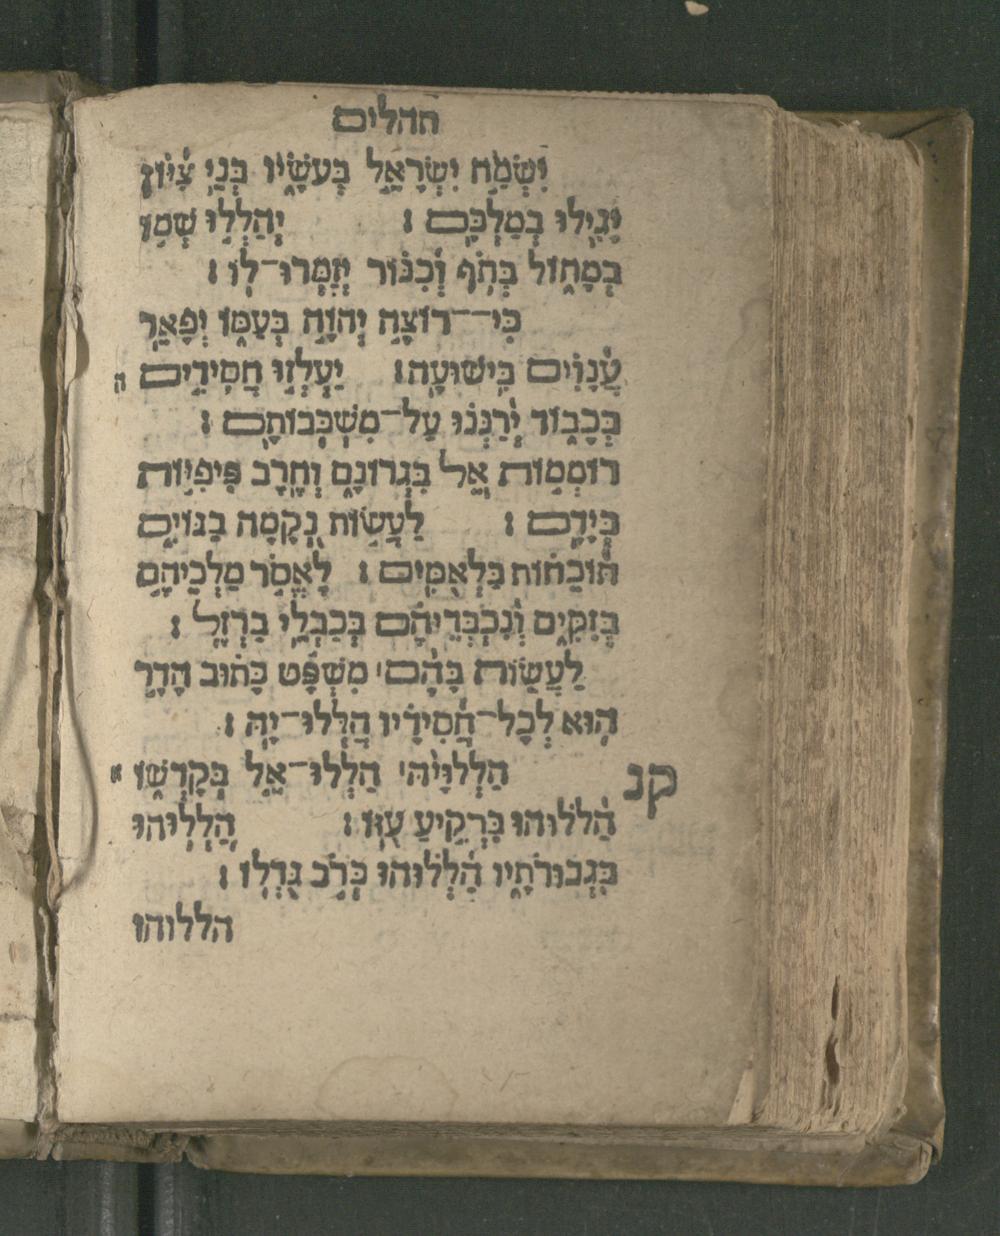 תהלים
יִשְׂמַח יִשְׂרָאֵל בְּעֹשָׂיו בְּנֵי צִיּוֹן
יָגִילוּ בְמַלְכָּם׃ יְהַלְלוּ שְׁמוֹ
בְמָחוֹל בְּתֹף וְכִנּוֹר יְזַמְּרוּ־לוֹ׃
כִּי־־רוֹצֶה יְהוָה בְּעַמּוֹ יְפָאֵר
עֲנָוִים בִּישׁוּעָה׃ יַעְלְזוּ חֲסִידִים ה
בְּכָבוֹד יְרַנְּנוּ עַל־מִשְׁכְּבוֹתָם׃
רוֹמְמוֹת אֵל בִּגְרוֹנָם וְחֶרֶב פִּיפִיּוֹת
בְּיָדָם׃ לַעֲשׂוֹת נְקָמָה בַגּוֹיִם
תּוֹכֵחוֹת בַּלְאֻמִּים׃ לֶאְסֹר מַלְכֵיהֶם
בְּזִקִּים וְנִכְבְּדֵיהֶם בְּכַבְלֵי בַרְזֶל׃
לַעֲשׂוֹת בָּהֶם׀ מִשְׁפָּט כָּתוּב הָדָר
הוּא לְכָל־חֲסִידָיו הַלְלוּ־יָהּ׃
קנ הַלְלוּיָהּ׀ הַלְלוּ־אֵל בְּקָדְשׁוֹ א
הַלְלוּהוּ בִּרְקִיעַ עֻזּוֹ׃ הַלְלוּהוּ
בִּגְבוּרֹתָיו הַלְלוּהוּ כְּרֹב גֻּדְלוֹ׃
הללוהו